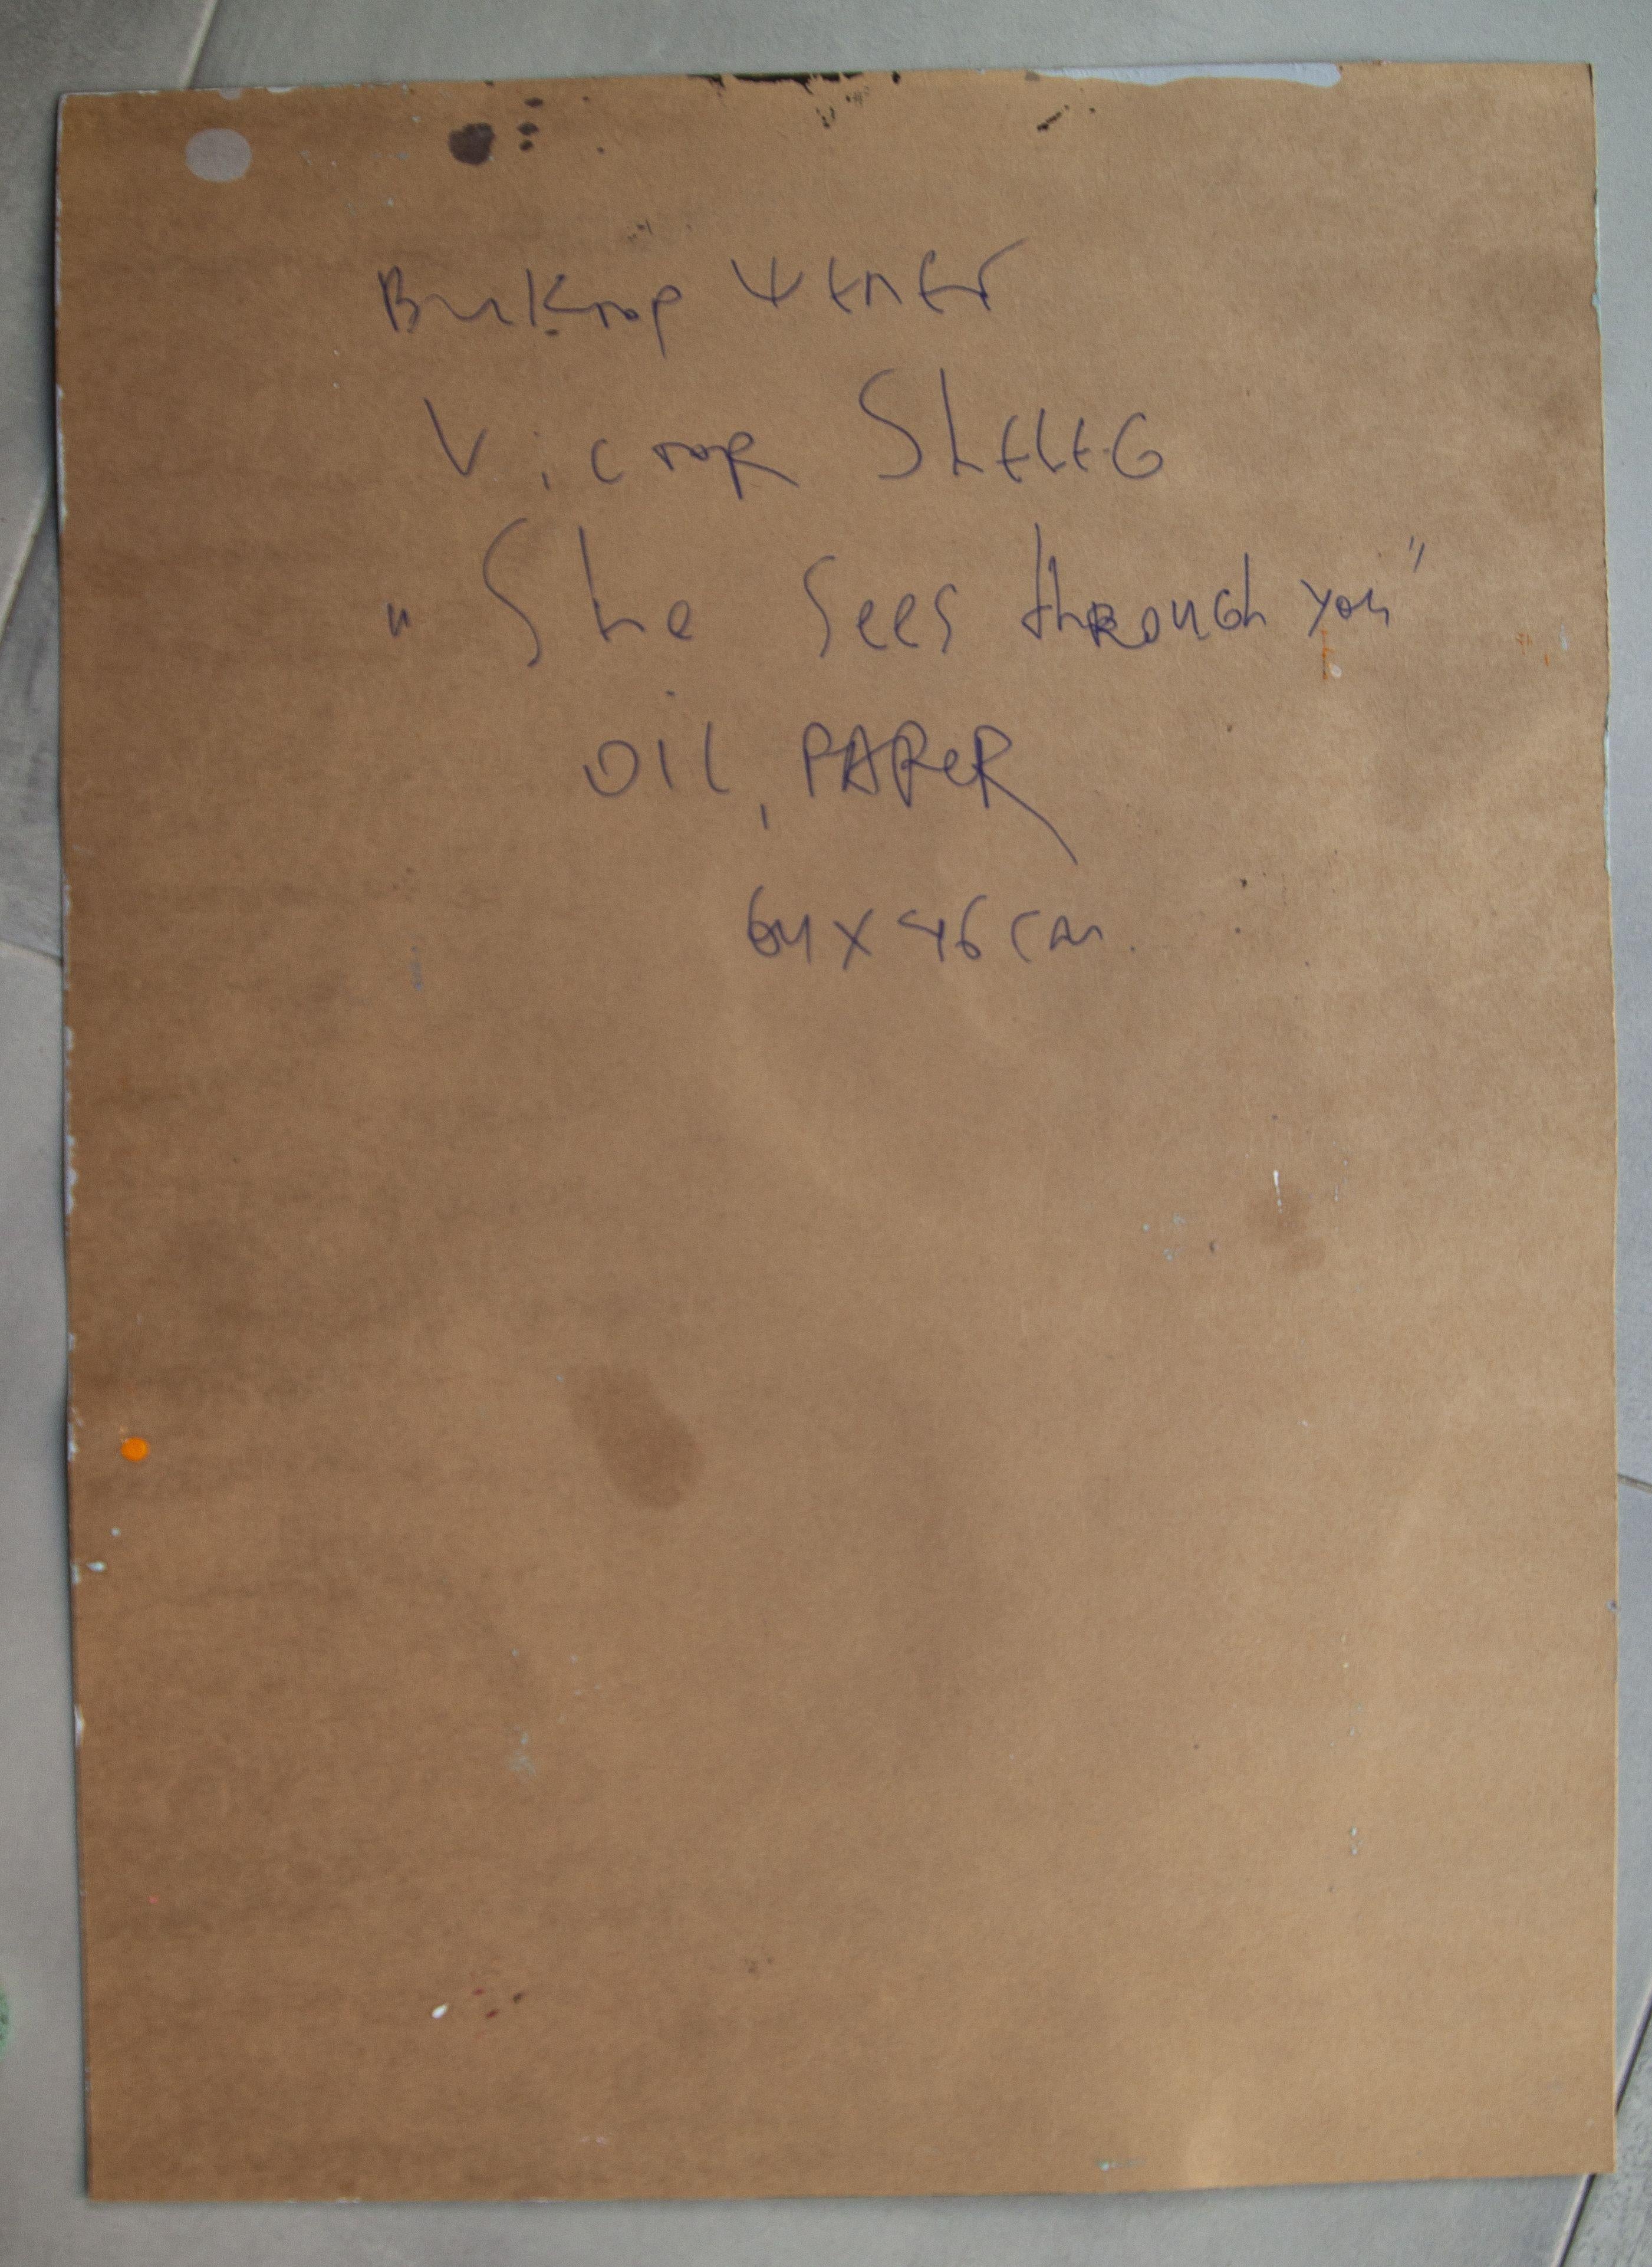 Виктор Шелег
Victor SheleG
"She sees through you"
OIL, PAPeR
64 x 46 cm.